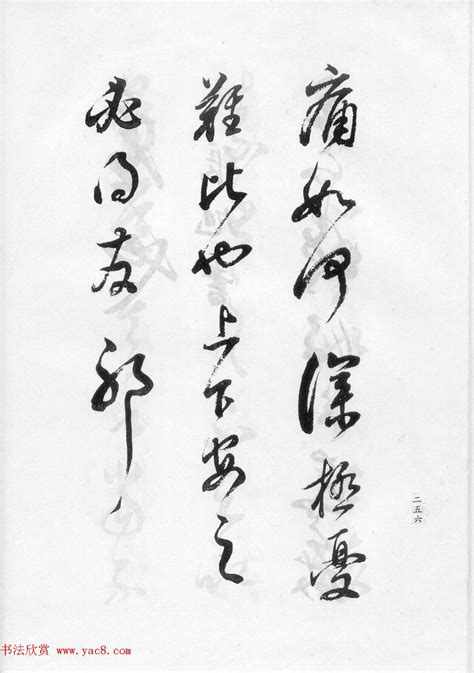 痛如何深極憂
比也上下安之
必得友耶
二五六
书法欣赏 www.yac8.com